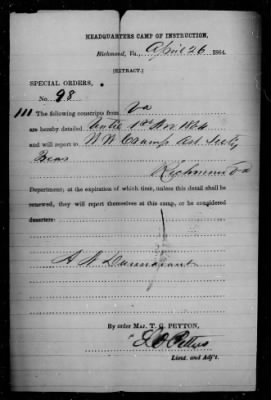 HEADQUARTERS CAMP OF INSTRUCTION,
Richmond, Va., April 26 1864.
(EXTRACT.)
SPECIAL ORDERS,
No. 98
III The following conscripts from Va
are hereby detailed until 1st Nov 1864
and will report to W W Crump Asst Secty
Treas
Richmond Va
Department; at the expiration of which time, unless this detail shall be
renewed, they will report themselves at this camp, or be considered
deserters:
By order Maj. T. G. PEYTON,
Lieut. and Adj't.